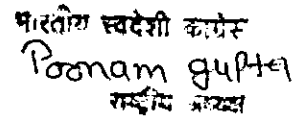 भारतीय स्वदेशी कांग्रेस
Poonam gupta
राष्ट्रीय अध्यक्ष